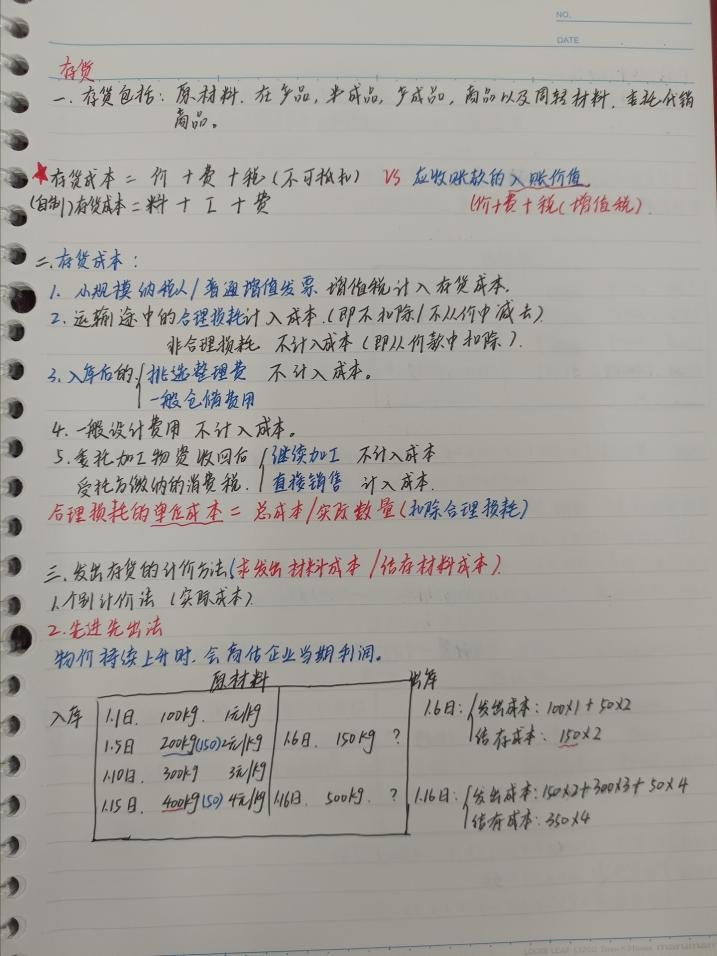 NO.
DATE
存货
一、存货包括：原材料，在产品，半成品，产成品，商品以及周转材料，委托代销
商品。
★存货成本 = 价 + 费 + 税（不可抵扣） VS 应收账款的入账价值
(自制)存货成本 = 料 + 工 + 费 价+费+税（增值税）
二、存货成本：
1. 小规模纳税人/普通增值发票 增值税计入存货成本.
2. 运输途中的合理损耗计入成本.（即不扣除/不从价中减去）
非合理损耗 不计入成本（即从价款中扣除）.
3. 入库后的 挑选整理费 不计入成本。
一般仓储费用
4. 一般设计费用 不计入成本。
5. 委托加工物资收回后 继续加工 不计入成本
受托方缴纳的消费税. 直接销售 计入成本.
合理损耗的单位成本 = 总成本/实际数量（扣除合理损耗）
三、发出存货的计价方法（求发出材料成本/结存材料成本）.
1. 个别计价法（实际成本）
2. 先进先出法
物价持续上升时，会高估企业当期利润。
原材料 出库
入库 1.1日. 100kg. 1元/kg 1.6日: 发出成本: 100×1+50×2
1.5日 200kg(150) 2元/kg 1.6日. 150kg ? 结存成本: 150×2
1.10日. 300kg 3元/kg
1.15日. 400kg(50) 4元/kg 1.16日. 500kg. ? 1.16日: 发出成本: 150×2+300×3+50×4
结存成本: 350×4
LOOSE LEAF L1200 7mm×35lines maruman